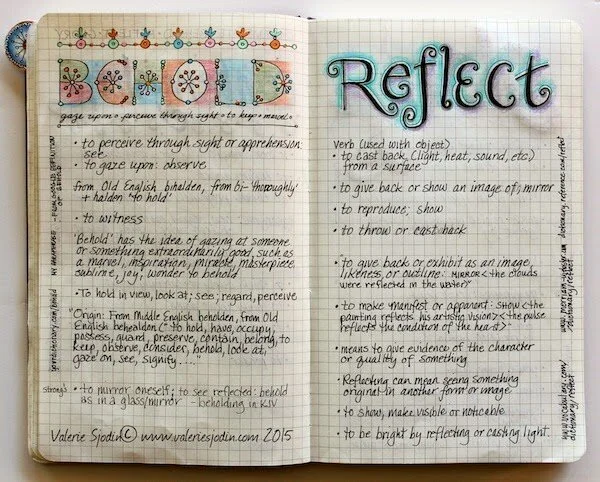 BEHOLD
gaze upon • perceive through sight • to keep • marvel •
• to perceive through sight or apprehension:
see
• to gaze upon: observe
from Old English bihalden, from bi- 'thoroughly'
+ halden "to hold"
• to witness
"Behold" has the idea of gazing at someone
or something extraordinarily good, such as
a marvel, inspiration, miracle, masterpiece
sublime, joy, wonder to behold
• To hold in view, look at; see; regard, perceive
"Origin: From Middle English beholden, from Old
English behealdon ("to hold, have, occupy,
possess, guard, preserve, contain, belong, to
keep, observe, consider, behold, look at,
gaze on, see, signify....."
strongs
• to mirror oneself; to see reflected: behold
as in a glass/mirror - beholding in KJV
Valerie Sjodin © www.valeriesjodin.com 2015
- FROM GOOGLE DEFINITION
OF BEHOLD
MY PARAPHRASE
yourdictionary.com/behold
Reflect
verb (used with object)
• to cast back (light, heat, sound, etc.)
from a surface
• to give back or show an image of; mirror
• to reproduce; show
• to throw or cast back
• to give back or exhibit as an image,
likeness, or outline: MIRROR <the clouds
were reflected in the water>
• to make manifest or apparent: SHOW <the
painting reflects his artistic vision> <the pulse
reflects the condition of the heart>
• means to give evidence of the character
or quality of something
• Reflecting can mean seeing something
original in another form or image
• to show, make visible or noticable
• to be bright by reflecting or casting light.
dictionary.reference.com/reflect
www.merriam-webster.com
dictionary/reflect
www.vocabulary.com/
dictionary/reflect